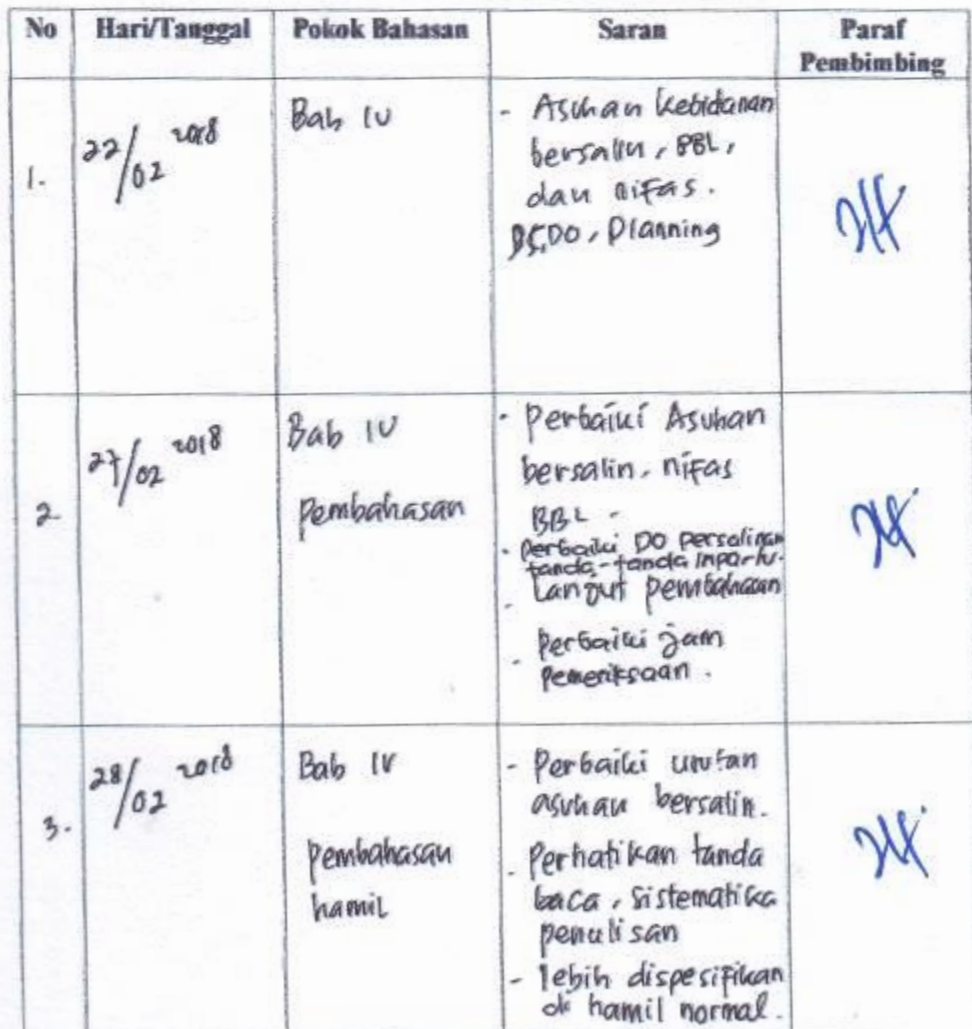 No Hari/Tanggal Pokok Bahasan Saran Paraf Pembimbing
1. 22/02 2018
Bab IV
- Asuhan kebidanan
bersalin, BBL,
dan nifas.
DS, DO, Planning
2. 27/02 2018
Bab IV
pembahasan
- Perbaiki Asuhan
bersalin, nifas
BBL -
- Perbaiki DO Persalinan
tanda-tanda inpartu.
- Lanjut pembahasan
- Perbaiki jam
Pemeriksaan.
3. 28/02 2018
Bab IV
pembahasan
hamil
- Perbaiki urutan
asuhan bersalin.
- Perhatikan tanda
baca, sistematika
penulisan
- lebih dispesifikan
di hamil normal.